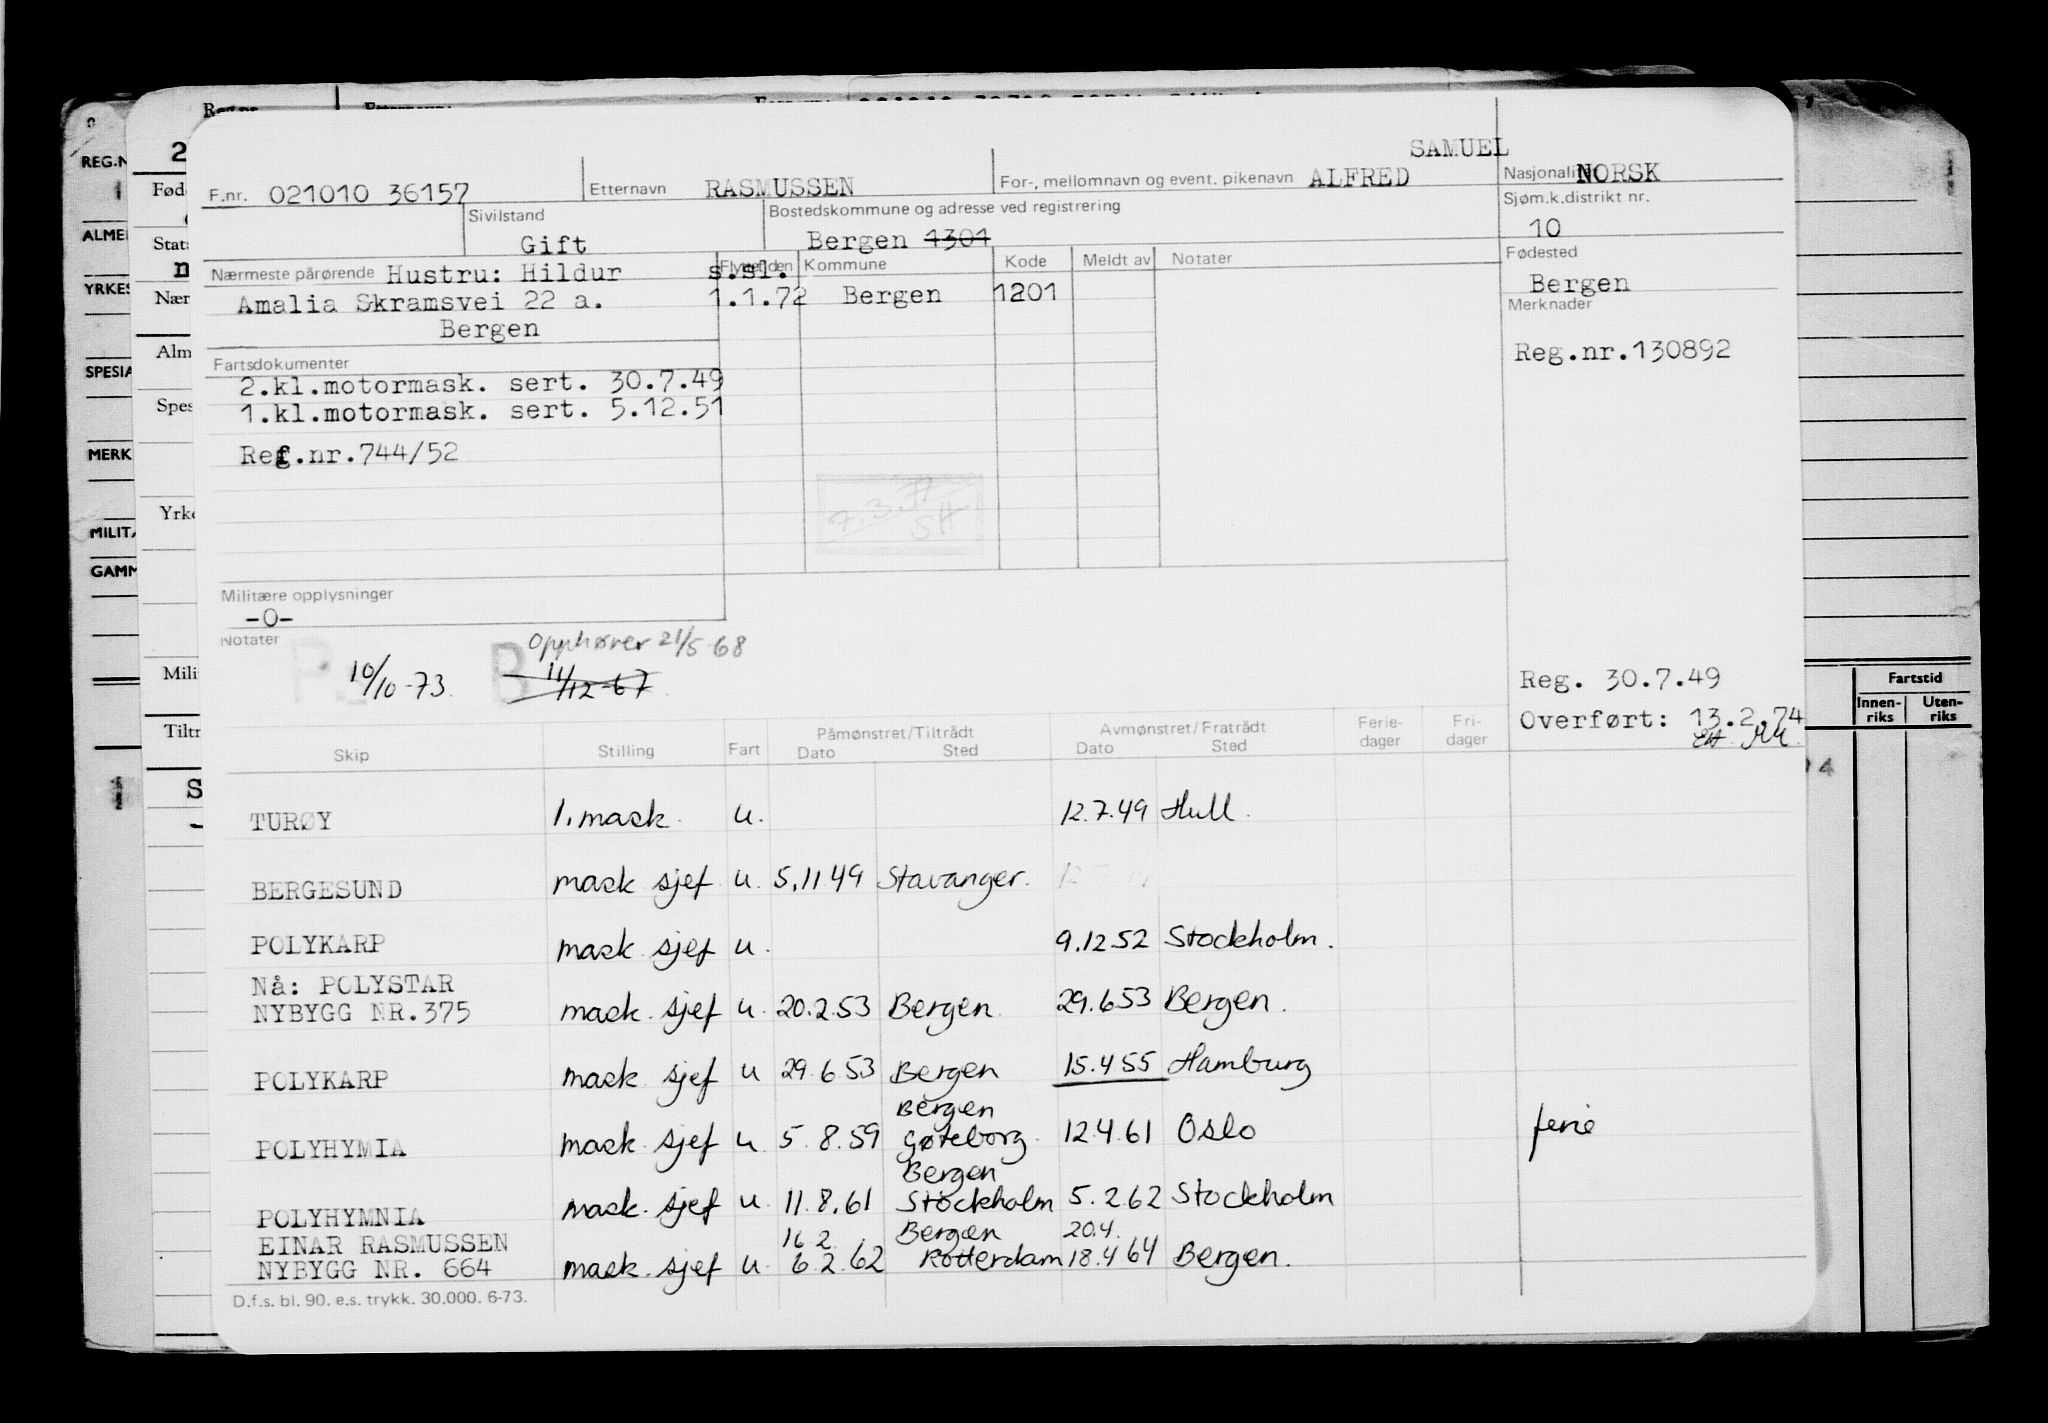 SAMUEL
F.nr. 021010 36157 Etternavn RASMUSSEN For-, mellomnavn og event. pikenavn ALFRED Nasjonalitet NORSK
Sivilstand Gift Bostedskommune og adresse ved registrering Bergen 1301 Sjøm.k.distrikt nr. 10
Nærmeste pårørende Hustru: Hildur s.st. Flyttet den Kommune Kode Meldt av Notater Fødested
Amalia Skramsvei 22 a. 1.1.72 Bergen 1201 Bergen
Bergen Merknader
Fartsdokumenter Reg.nr.130892
2.kl.motormask. sert. 30.7.49
1.kl.motormask. sert. 5.12.51
Ref.nr.744/52
7.3.77
SH
Militære opplysninger
-0-
Notater
P. 10/10-73. B Opphører 21/5-68
11/12-67
Reg. 30.7.49
Overført: 13.2.74
Skip Stilling Fart Påmønstret/Tiltrådt Dato Sted Avmønstret/Fratrådt Dato Sted Ferie-dager Fri-dager
TURØY 1. mask. u. 12.7.49 Hull.
BERGESUND mask. sjef u. 5.11.49 Stavanger.
POLYKARP mask. sjef u. 9.12.52 Stockholm.
Nå: POLYSTAR
NYBYGG NR.375 mask. sjef u. 20.2.53 Bergen. 29.6.53 Bergen.
POLYKARP mask. sjef u 29.6.53 Bergen 15.4.55 Hamburg
Bergen
POLYHYMIA mask. sjef u. 5.8.59 Gøteborg. 12.4.61 Oslo ferie
Bergen
POLYHYMNIA mask. sjef u. 11.8.61 Stockholm 5.2.62 Stockholm
EINAR RASMUSSEN 16 2 Bergen 20.4.
NYBYGG NR. 664 mask. sjef u. 6.2.62 Rotterdam 18.4.64 Bergen.
D.f.s. bl. 90. e.s. trykk. 30.000. 6-73.
REG.N
ALME
YRKES
SPESIA
MERK
MILITÆ
GAMM
2
Fød
Stats
Nær
Alm
Spes
Yrke
Mili
Tiltr
S
Fartstid
Innen-riks Uten-riks